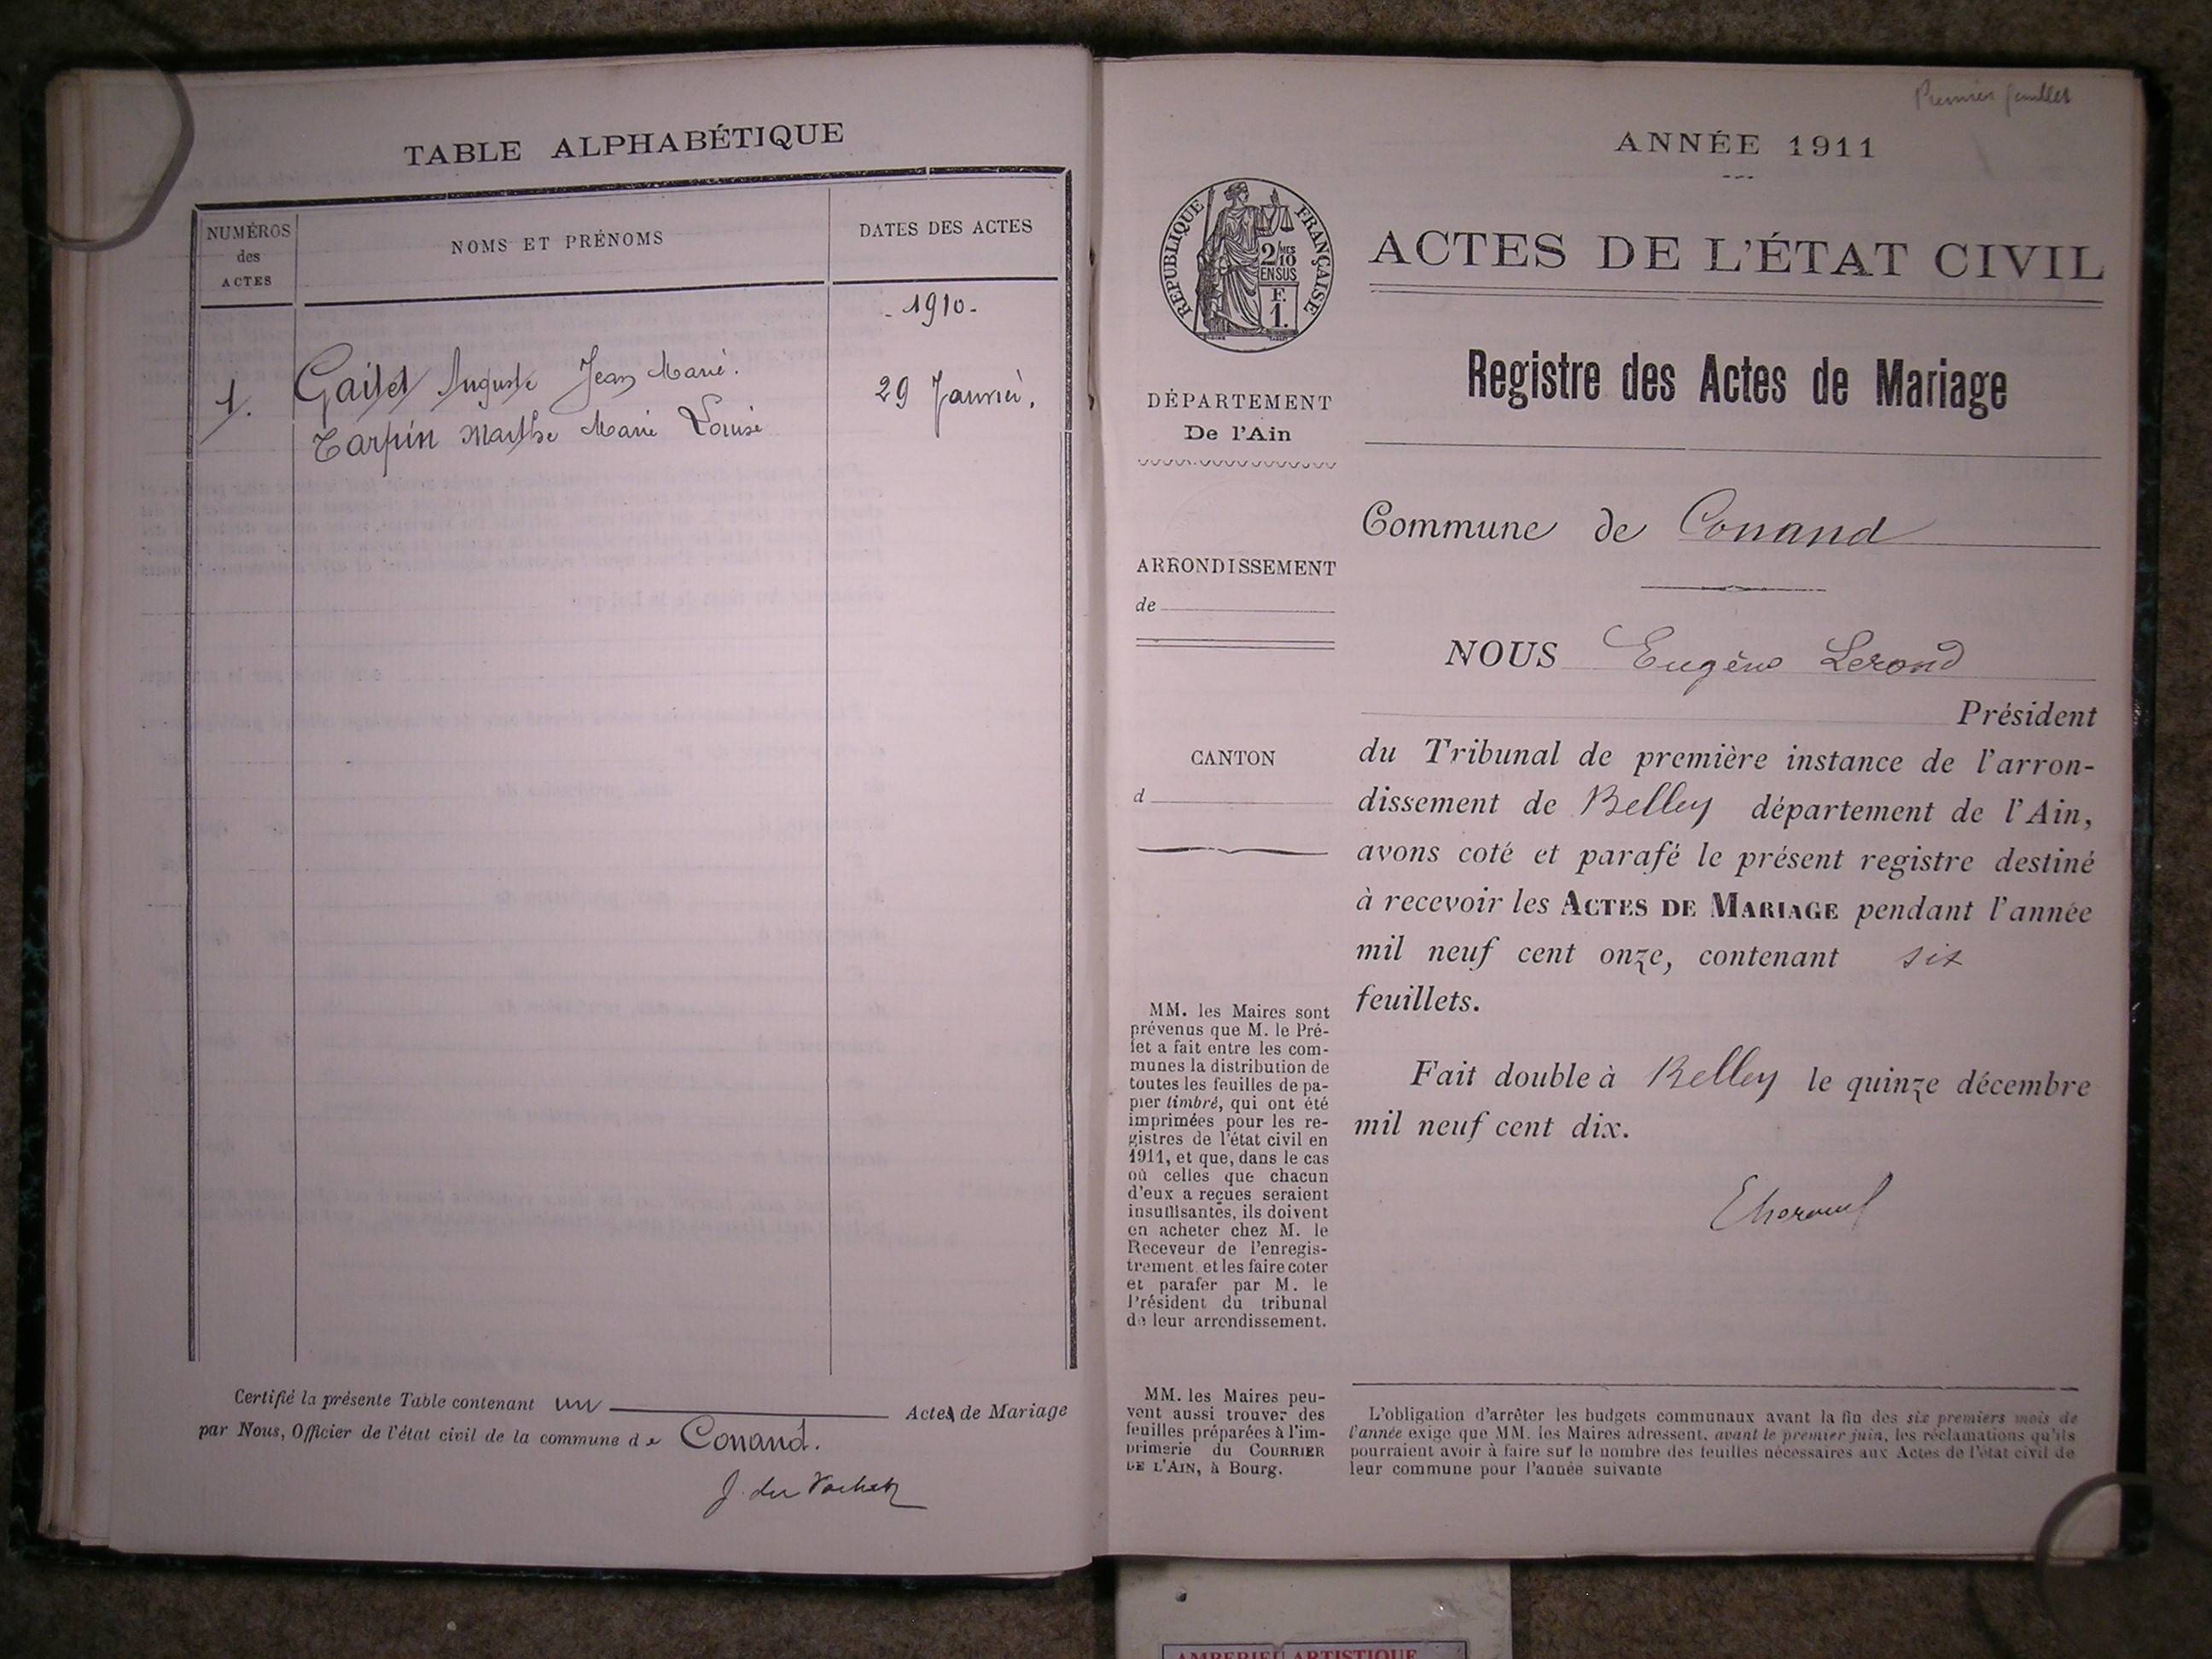 TABLE ALPHABÉTIQUE
NUMÉROS
des
ACTES
NOMS ET PRÉNOMS
DATES DES ACTES
- 1910 -
1.
Auguste Jean Marie.
Tarpin Marthe Marie Louise
29 Janvier.
Certifié la présente Table contenant un Actes de Mariage
par Nous, Officier de l'état civil de la commune de Conand.
Premier feuillet
ANNÉE 1911
RÉPUBLIQUE FRANÇAISE
2/10 MES
EN SUS
F.
1.
ACTES DE L'ÉTAT CIVIL
Registre des Actes de Mariage
DÉPARTEMENT
De l'Ain
ARRONDISSEMENT
de
CANTON
d
Commune de Conand
NOUS Eugène Lerond
Président
du Tribunal de première instance de l'arron-
dissement de Belley département de l'Ain,
avons coté et parafé le présent registre destiné
à recevoir les ACTES DE MARIAGE pendant l'année
mil neuf cent onze, contenant six
feuillets.
Fait double à Belley le quinze décembre
mil neuf cent dix.
MM. les Maires sont
prévenus que M. le Pré-
fet a fait entre les com-
munes la distribution de
toutes les feuilles de pa-
pier timbré, qui ont été
imprimées pour les re-
gistres de l'état civil en
1911, et que, dans le cas
où celles que chacun
d'eux a reçues seraient
insuffisantes, ils doivent
en acheter chez M. le
Receveur de l'enregis-
trement et les faire coter
et parafer par M. le
Président du tribunal
de leur arrondissement.
MM. les Maires peu-
vent aussi trouver des
feuilles préparées à l'im-
primerie du COURRIER
DE L'AIN, à Bourg.
L'obligation d'arrêter les budgets communaux avant la fin des six premiers mois de
l'année exige que MM. les Maires adressent, avant le premier juin, les réclamations qu'ils
pourraient avoir à faire sur le nombre des feuilles nécessaires aux Actes de l'état civil de
leur commune pour l'année suivante
AMBERIEU ARTISTIQUE